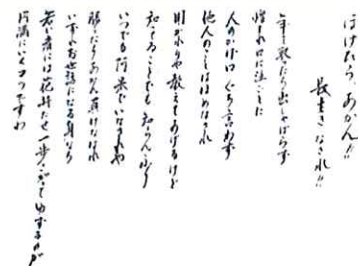 ぼけたら、あかん!!
長生きしなされ!!
年を取ったら出しゃばらず
憎まれ口に泣ごとに
人のかげ口ぐち言わず
他人のことはほめなされ
聞かれりゃ教えてあげるけど
知ってることでも知らんふり
いつでも阿呆でいなされや
勝ったらあかん負けなされ
いずれお世話になる身なら
若い者には花持たせ一歩さがってゆずるのが
円満にいくコツですわ